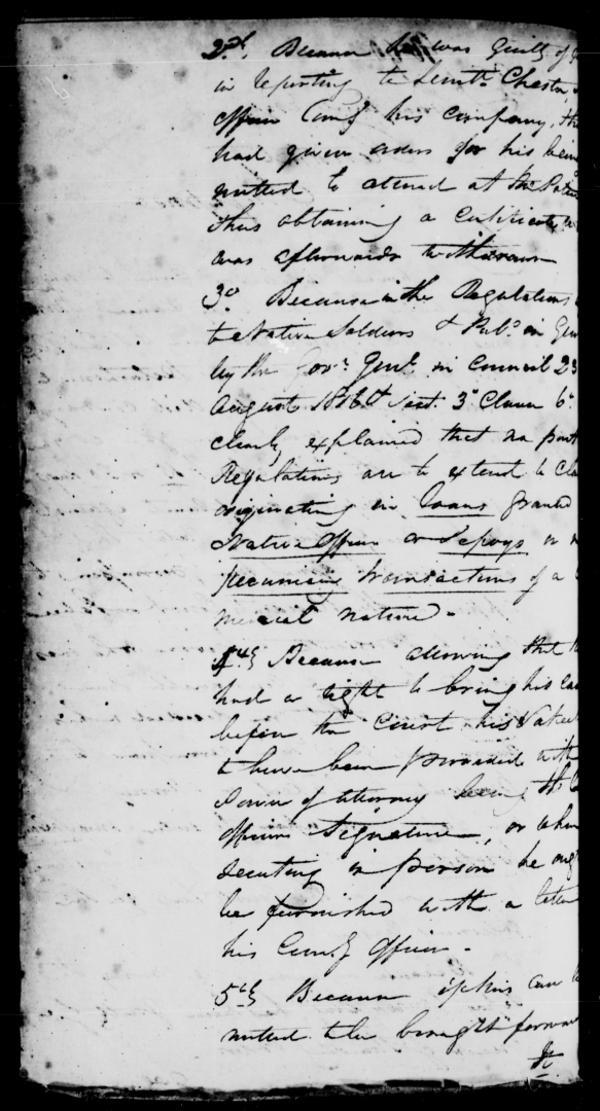 2d. Because he was Guilty of
in reporting to Lieutt. Chester,
officer Comg his company, th
had given orders for his bein
mitted to attend at the
thus obtaining a Certificate
was afterwards withdrawn
3d. Because in the Regulations
to Native Soldiers & Pubd. in Gen
by the Govr. Genl. in Council 23
August 1816 Sect. 3d Clause 6th
clearly explained that no part
Regulations are to extend to Cla
originating in loans granted
Native Officers or Sepoys or
pecuniary transactions of a
mercial nature -
4thly Because allowing that
had a right to bring his Cas
before the Court his Vakeel
to have been provided with
Power of Attorney being
officers Signature, or when
secuting in person he oug
be furnished with a letter
his Comg Officer -
5thly Because if this can
mitted to be brought forward